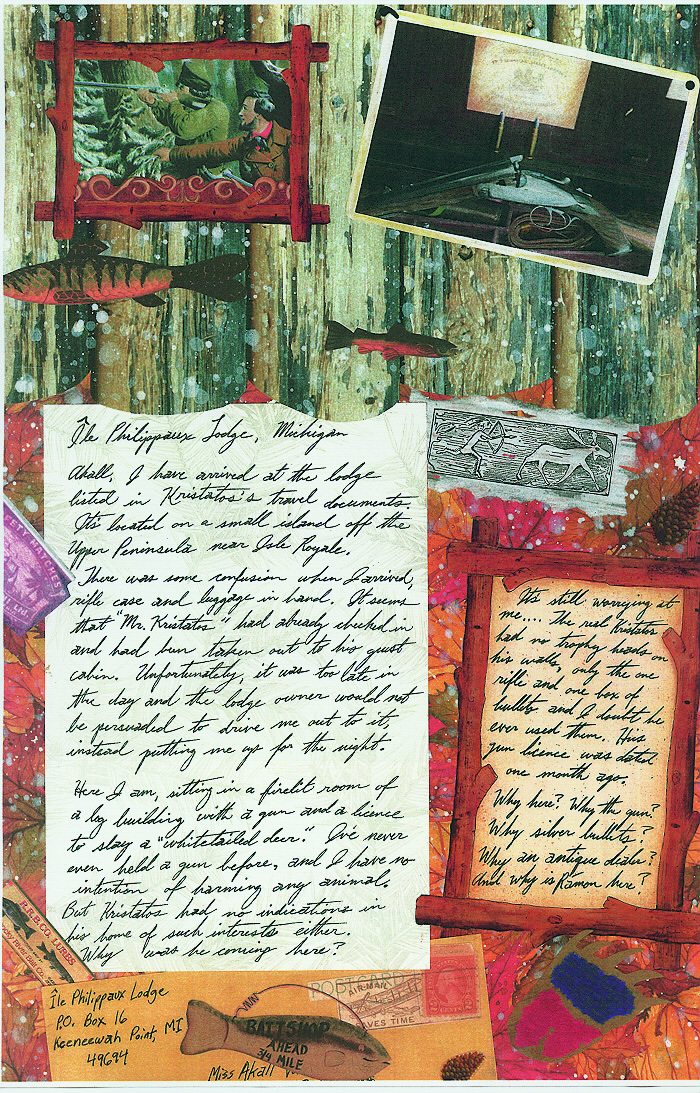 Île Philippaux Lodge, Michigan
Akall, I have arrived at the lodge
listed in Kristatos's travel documents.
It's located on a small island off the
Upper Peninsula near Isle Royale.
There was some confusion when I arrived,
rifle case and luggage in hand. It seems
that "Mr. Kristatos" had already checked in
and had been taken out to his guest
cabin. Unfortunately, it was too late in
the day and the lodge owner would not
be persuaded to drive me out to it,
instead putting me up for the night.
Here I am, sitting in a firelit room of
a log building with a gun and a licence
to slay a "whitetailed deer." I've never
even held a gun before, and I have no
intention of harming any animal.
But Kristatos had no indications in
his home of such interests either.
Why was he coming here?
It's still worrying at
me.... the real Kristatos
had no trophy heads on
his walls, only the one
rifle and one box of
bullets and I doubt he
ever used them. His
gun licence was dated
one month ago.
Why here? Why the gun?
Why silver bullets?
Why an antique dealer?
And why is Ramon here?
P.R.B.CO. LURES
Île Philippaux Lodge
P.O. Box 16
Keeneewah Point, MI
49694
POSTCARD
AIR-MAIL
SAVES TIME
BAIT SHOP
AHEAD
3/4 MILE
Miss Akall